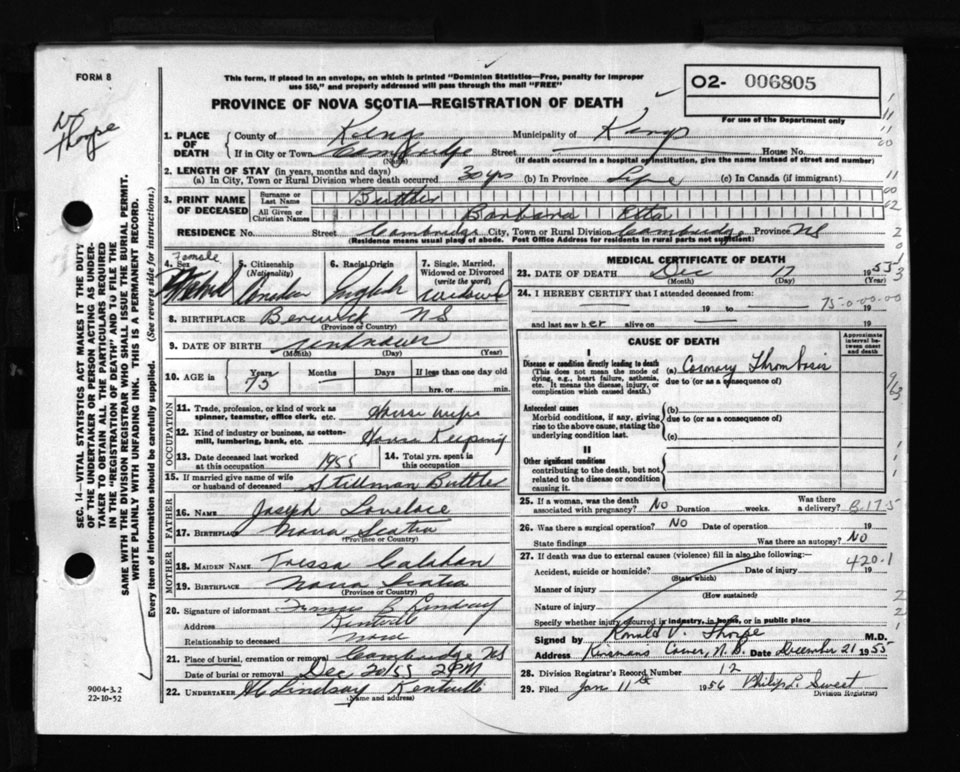 FORM 8
This form, if placed in an envelope, on which is printed "Dominion Statistics—Free, penalty for improper
use $50," and properly addressed will pass through the mail "FREE"
PROVINCE OF NOVA SCOTIA—REGISTRATION OF DEATH
O2- 006805
For use of the Department only
Thorpe
SEC. 14—VITAL STATISTICS ACT MAKES IT THE DUTY
OF THE UNDERTAKER OR PERSON ACTING AS UNDER-
TAKER TO OBTAIN ALL THE PARTICULARS REQUIRED
IN THE "REGISTRATION OF DEATH" AND TO FILE THE
SAME WITH THE DIVISION REGISTRAR WHO SHALL ISSUE THE BURIAL PERMIT.
WRITE PLAINLY WITH UNFADING INK. THIS IS A PERMANENT RECORD.
Every item of information should be carefully supplied. (See reverse side for instructions.)
1. PLACE OF DEATH
County of Kings Municipality of Kings
If in City or Town Cambridge Street House No.
(Name) (If death occurred in a hospital or institution, give the name instead of street and number)
2. LENGTH OF STAY (in years, months and days)
(a) In City, Town or Rural Division where death occurred 30 yrs (b) In Province Life (c) In Canada (if immigrant)
3. PRINT NAME OF DECEASED
Surname or Last Name Buttler
All Given or Christian Names Barbara Etta
RESIDENCE No. Street Cambridge City, Town or Rural Division Cambridge Province NS
(Residence means usual place of abode. Post Office Address for residents in rural parts not sufficient)
4. Sex Female
5. Citizenship (Nationality) Canadian
6. Racial Origin English
7. Single, Married, Widowed or Divorced (write the word) widowed
8. BIRTHPLACE Berwick NS
(Province or Country)
9. DATE OF BIRTH unknown
(Month) (Day) (Year)
10. AGE in Years 75 Months — Days If less than one day old
hrs. or min.
OCCUPATION
11. Trade, profession, or kind of work as spinner, teamster, office clerk, etc. House wife
12. Kind of industry or business, as cotton-mill, lumbering, bank, etc. House Keeping
13. Date deceased last worked at this occupation 1955
14. Total yrs. spent in this occupation
15. If married give name of wife or husband of deceased Stillman Buttler
FATHER
16. NAME Joseph Lovelace
17. BIRTHPLACE Nova Scotia
(Province or Country)
MOTHER
18. MAIDEN NAME Tressa Calahan
19. BIRTHPLACE Nova Scotia
(Province or Country)
20. Signature of informant Francis B Lindsay
Address Kentville
Relationship to deceased None
21. Place of burial, cremation or removal Cambridge NS
Date of burial or removal Dec 20/55 2 PM
22. UNDERTAKER Lindsay Kentville
(Name and address)
9004-3.2
22-10-52
MEDICAL CERTIFICATE OF DEATH
23. DATE OF DEATH Dec 17 1955
(Month) (Day) (Year)
24. I HEREBY CERTIFY that I attended deceased from:
19 to 19
75-0-00-00
and last saw her alive on 19
CAUSE OF DEATH
Approximate interval between onset and death
I
Disease or condition directly leading to death
(This does not mean the mode of dying, e.g., heart failure, asthenia, etc. It means the disease, injury, or complication which caused death.)
(a) Coronary Thrombosis
due to (or as a consequence of)
Antecedent causes
Morbid conditions, if any, giving rise to the above cause, stating the underlying condition last.
(b)
due to (or as a consequence of)
(c)
II
Other significant conditions
contributing to the death, but not related to the disease or condition causing it.
25. If a woman, was the death associated with pregnancy? No Duration weeks. Was there a delivery?
26. Was there a surgical operation? No Date of operation 19
State findings Was there an autopsy? No
27. If death was due to external causes (violence) fill in also the following:—
420.1
Accident, suicide or homicide? Date of injury 19
(State which)
Manner of injury
(How sustained)
Nature of injury
Specify whether injury occurred in industry, in home, or in public place
Signed by Ronald V. Thorpe M.D.
Address Date December 21 1955
28. Division Registrar's Record Number 12
29. Filed Jan 11th 1956 Philip L. Sweet
Division Registrar